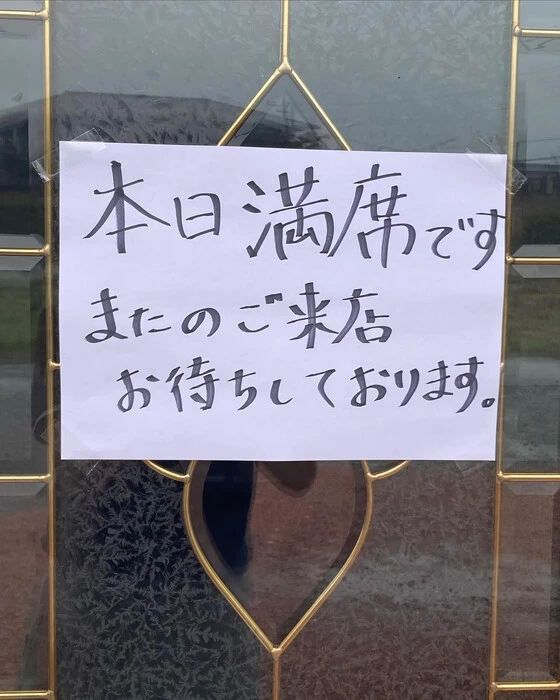 本日満席です
またのご来店
お待ちしております。